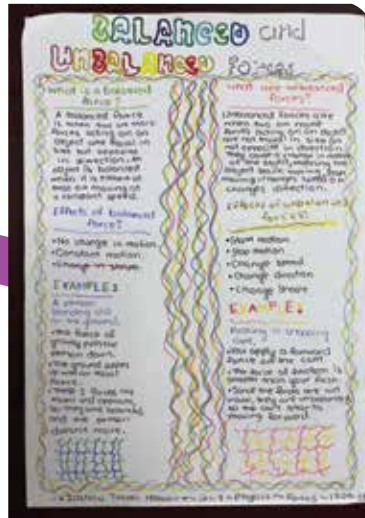 BALANCED and
UNBALANCED forces
What is a balanced
force?
A balanced force
is when two or more
forces acting on an
object are equal in
size but opposite
in direction. An
object is balanced
when it is
moving at
a constant speed.
Effects of balanced
force?
•No change in motion
•Constant motion
•Change in shape
EXAMPLE:
A person
standing still
on the ground.
•The force of
gravity pulls the
person down.
•The ground
force.
forces are
equal and opposite,
so they are balanced
and the person
doesn't move.
What are unbalanced
forces?
Unbalanced forces are
when two or more
forces acting on an object
are not equal in size or
not opposite in direction.
They cause a change in motion
of the object,
object
changes direction.
Effects of unbalanced
forces?
•Start motion
•Stop motion
•Change speed
•Change direction
•Change shape
EXAMPLE:
Pushing a shopping
cart.
•You apply a forward
force on the cart
•The force of friction is
smaller than your push
•Since the forces are not
equal, they are unbalanced,
so the cart starts
moving forward.